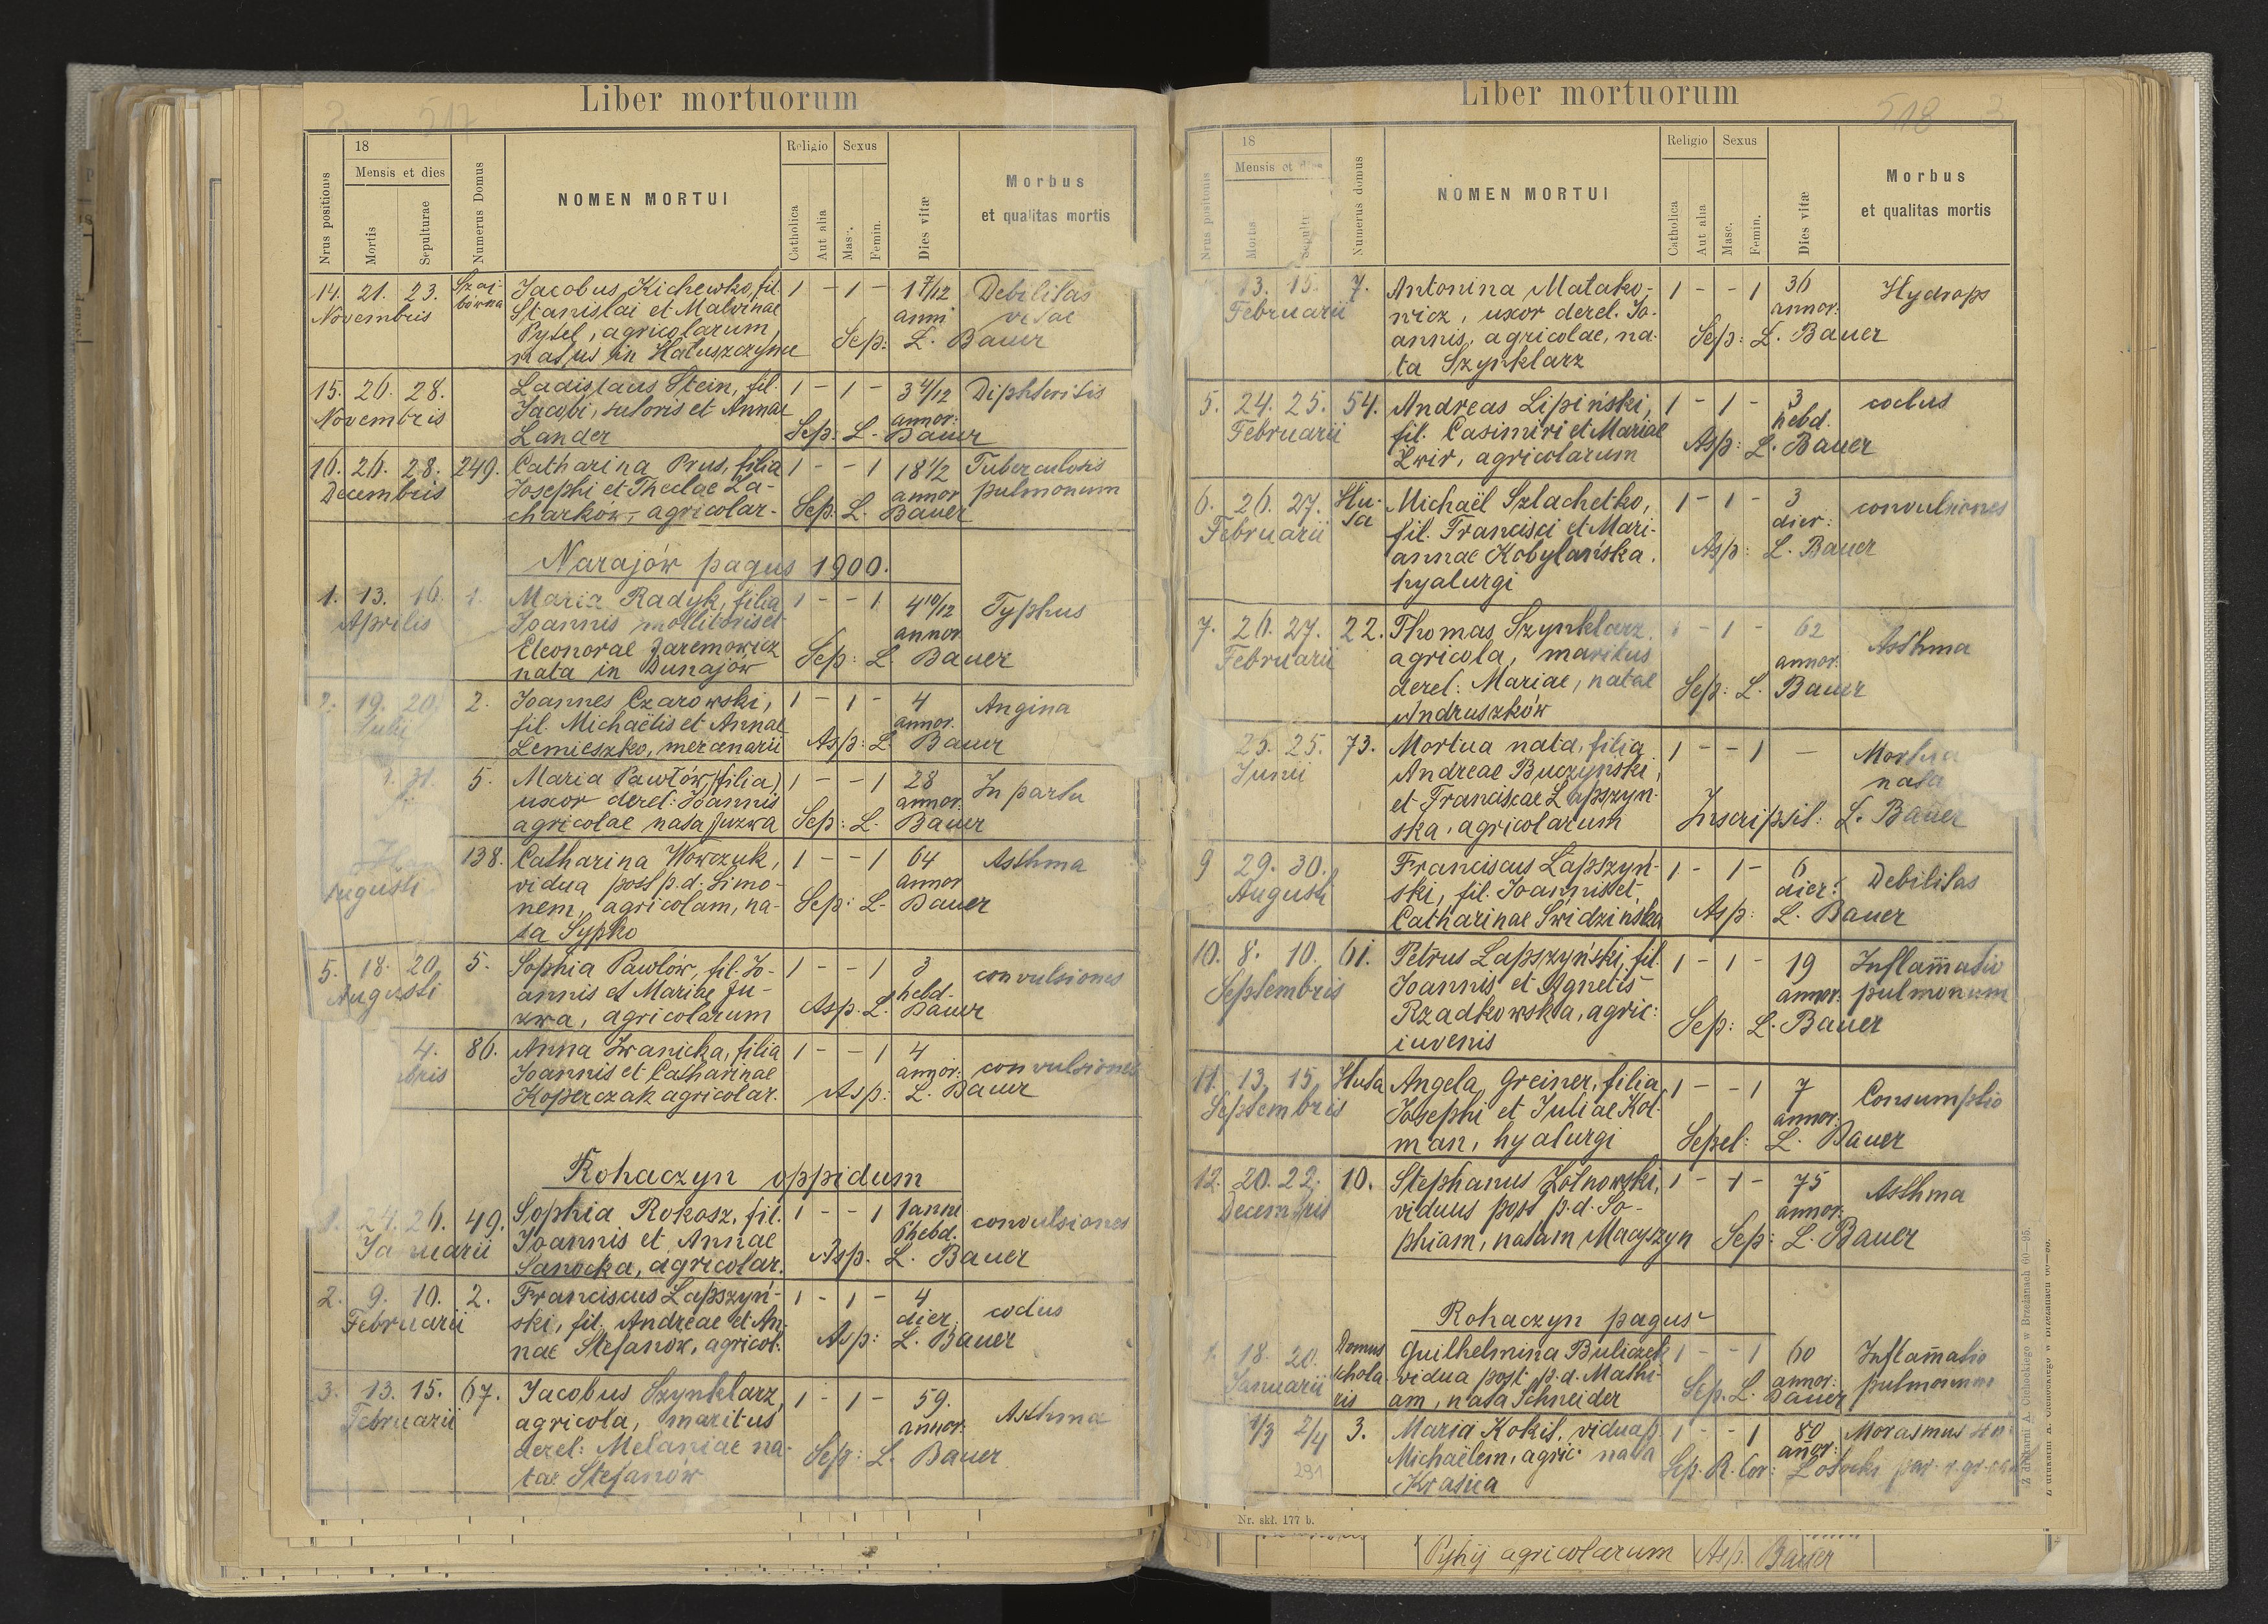 517
Liber mortuorum
Nrus positionis
18
Mensis et dies
Mortis
Sepulturae
Numerus Domus
NOMEN MORTUI
Religio
Catholica
Aut alia
Sexus
Masc.
Femin.
Dies vitæ
Morbus
et qualitas mortis
14. 21. 23. Jacobus Kichewko, fil. 1 - 1 - 1 7/12 Debilitas
Novembris Stanislai et Malvinae anni vitae
Pytel, agricolarum, Sep: L. Bauer
natus in Hatuszczyńce
15. 26. 28. Ladislaus Stein, fil. 1 - 1 - 3 4/12 Diphteritis
Novembris Jacobi, sutoris et Annae annor:
Lander Sep: L. Bauer
16. 26. 28. 249. Catharina Prus, filia 1 - - 1 18 1/2 Tuberculosis
Decembris Josephi et Theclae Za- annor pulmonum
charków, agricolar. Sep. L. Bauer
Narajów pagus 1900.
1. 13. 16. 1. Maria Radyk, filia 1 - - 1 4 10/12 Typhus
Aprilis Joannis mollitoris et annor
Eleonorae Jaremowicz
nata in Dunajów Sep: L. Bauer
2. 19. 20. 2. Joannes Czarowski, 1 - 1 - 4 Angina
Julii fil. Michaëlis et Annae annor.
Lemieszko, mercenarii Asp: L. Bauer
31. 5. Maria Pawłów, (filia) 1 - - 1 28 In partu
uxor derel: Joannis annor.
agricolae nata Juzwa Sep: L. Bauer
138. Catharina Wowczuk, 1 - - 1 64 Asthma
Augusti vidua post p. d. Simo- annor
nem, agricolam, na- Sep: L. Bauer
ta Sypko
5. 18. 20. 5. Sophia Pawłów, fil. Jo- 1 - - 1 3 convulsiones
Augusti annis et Mariae Ju- hebd.
zwa, agricolarum Asp. L. Bauer
4. 86. Anna Iwanicka, filia 1 - - 1 4 convulsiones
bris Joannis et Catharinae annor:
Koperczak agricolar. Asp: L. Bauer
Rohaczyn oppidum
1. 24. 26. 49. Sophia Rokosz, fil. 1 - - 1 1 anni convulsiones
Januarii Joannis et Annae hebd.
Sanocka, agricolar. Asp. L. Bauer
2. 9. 10. 2. Franciscus Łapszyń- 1 - 1 - 4 coctus
Februarii ski, fil. Andreae et An- dier.
nae Stefanów, agricol. Asp: L. Bauer
3. 13. 15. 67. Jacobus Szynklarz, 1 - 1 - 59. Asthma
Februarii agricola, maritus annor:
derel: Melaniae na- Sep: L. Bauer
tae Stefanów
518 3
Liber mortuorum
Nrus positionis
18
Mensis et
Mortis
Sepultu
Numerus domus
NOMEN MORTUI
Religio
Catholica
Aut alia
Sexus
Masc.
Femin.
Dies vitæ
Morbus
et qualitas mortis
13. 15. 7. Antonina Matako- 1 - - 1 36 Hydrops
Februarii wicz, uxor derel. Jo- annor:
annis, agricolae, na- Sep: L. Bauer
ta Szynklarz
5. 24. 25. 54. Andreas Lipiński, 1 - 1 - 3 coctus
Februarii fil. Casimiri et Mariae hebd.
Żwir, agricolarum Asp: L. Bauer
6. 26. 27. Hu- Michaël Szlachetko, 1 - 1 - 3 convulsiones
Februarii ta fil. Francisci et Mari- dier:
annae Kobylańska, Asp: L. Bauer
hyalurgi
7. 26. 27. 22. Thomas Szynklarz, 1 - 1 - 62 Asthma
Februarii agricola, maritus annor.
derel: Mariae, natae Sep: L. Bauer
Andruszków
25. 25. 73. Mortua nata, filia 1 - - 1 — Mortua
Junii Andreae Buczynski, nata
et Franciscae Łapszyn-
ska, agricolarum Inscripsit: L. Bauer
9 29. 30. Franciscus Łapszyń- 1 - 1 - 6 Debilitas
Augusti ski, fil. Joannis et dier:
Catharinae Swidzińska Asp: L. Bauer
10. 8. 10. 61. Petrus Łapszyński, fil. 1 - 1 - 19 Inflam̄atio
Septembris Joannis et Agnetis annor: pulmonum
Rzadkowska, agric: Sep: L. Bauer
iuvenis
11. 13. 15. Huta Angela Greiner, filia 1 - - 1 7 Consumptio
Septembris Josephi et Juliae Kol- annor:
man, hyalurgi Sepel: L. Bauer
12. 20. 22. 10. Stephanus Żołnowski, 1 - 1 - 75 Asthma
Decembris viduus post p. d. So- annor.
phiam, natam Maczyszyn Sep: L. Bauer
Rohaczyn pagus
1. 18. 20. Domus Guilhelmina Buliczek 1 - - 1 60 Inflam̄atio
Januarii schola vidua post p. d. Mathi- annor: pulmonum
ris am, nata Schneider Sep. L. Bauer
1/3 2/4 3. Maria Kokit, vidua p. 1 - - 1 80 Marasmus
291 Michaëlem, agric. nata an̄or:
Krasica Sep. R. Cor:
Nr. skł. 177 b.
Z drukarni A. Cichockiego w Brzeżanach 60—95.
Pyhij agricolarum Asp. Bauer